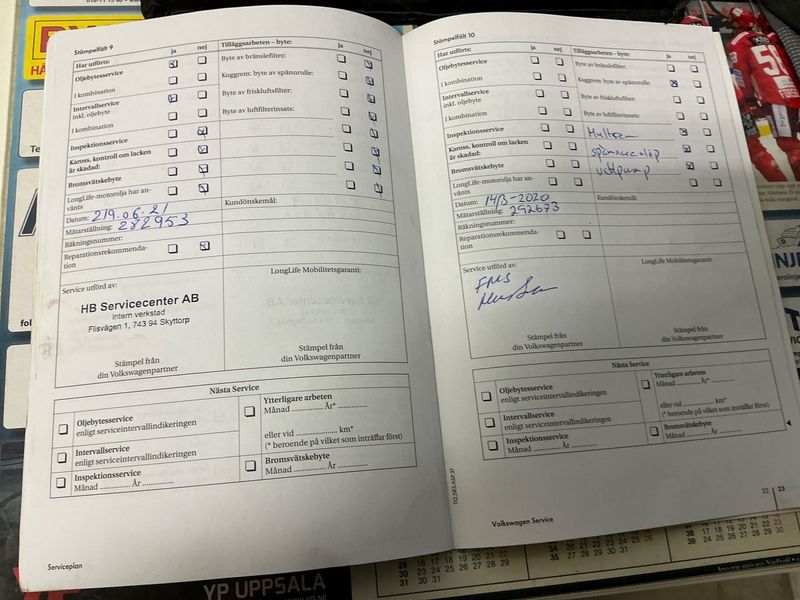 Stämpelfält 9
Har utförts: ja nej
Oljebytesservice
I kombination
Intervallservice
inkl. oljebyte
I kombination
Inspektionsservice
Kaross, kontroll om lacken
är skadad:
Bromsvätskebyte
LongLife-motorolja har an-
vänts
Datum: 219.06.21
Mätarställning: 282953
Räkningsnummer:
Reparationsrekommenda-
tion
Tilläggsarbeten – byte: ja nej
Byte av bränslefilter:
Kuggrem: byte av spännrulle:
Byte av friskluftsfilter:
Byte av luftfilterinsats:
Kundönskemål:
Service utförd av:
HB Servicecenter AB
Intern verkstad
Flisvägen 1, 743 94 Skyttorp
Stämpel från
din Volkswagenpartner
LongLife Mobilitetsgaranti:
Stämpel från
din Volkswagenpartner
Nästa Service
Oljebytesservice
enligt serviceintervallindikeringen
Intervallservice
enligt serviceintervallindikeringen
Inspektionsservice
Månad ........... År ...........
Ytterligare arbeten
Månad ........... År* ...........
eller vid ........... km*
(* beroende på vilket som inträffar först)
Bromsvätskebyte
Månad ........... År ...........
Serviceplan
Stämpelfält 10
Har utförts: ja nej
Oljebytesservice
I kombination
Intervallservice
inkl. oljebyte
I kombination
Inspektionsservice
Kaross, kontroll om lacken
är skadad:
Bromsvätskebyte
LongLife-motorolja har an-
vänts
Datum: 14/3-2020
Mätarställning: 292673
Räkningsnummer:
Reparationsrekommenda-
tion
Tilläggsarbeten – byte: ja nej
Byte av bränslefilter:
Kuggrem: byte av spännrulle:
Byte av friskluftsfilter:
Byte av luftfilterinsats:
Multirem
Kundönskemål:
Service utförd av:
FMS
Stämpel från
din Volkswagenpartner
LongLife Mobilitetsgaranti:
Stämpel från
din Volkswagenpartner
Nästa Service
Oljebytesservice
enligt serviceintervallindikeringen
Intervallservice
enligt serviceintervallindikeringen
Inspektionsservice
Månad ........... År ...........
Ytterligare arbeten
Månad ........... År* ...........
eller vid ........... km*
(* beroende på vilket som inträffar först)
Bromsvätskebyte
Månad ........... År ...........
112.5R3.ASP.37
22 | 23
Volkswagen Service
YP UPPSALA